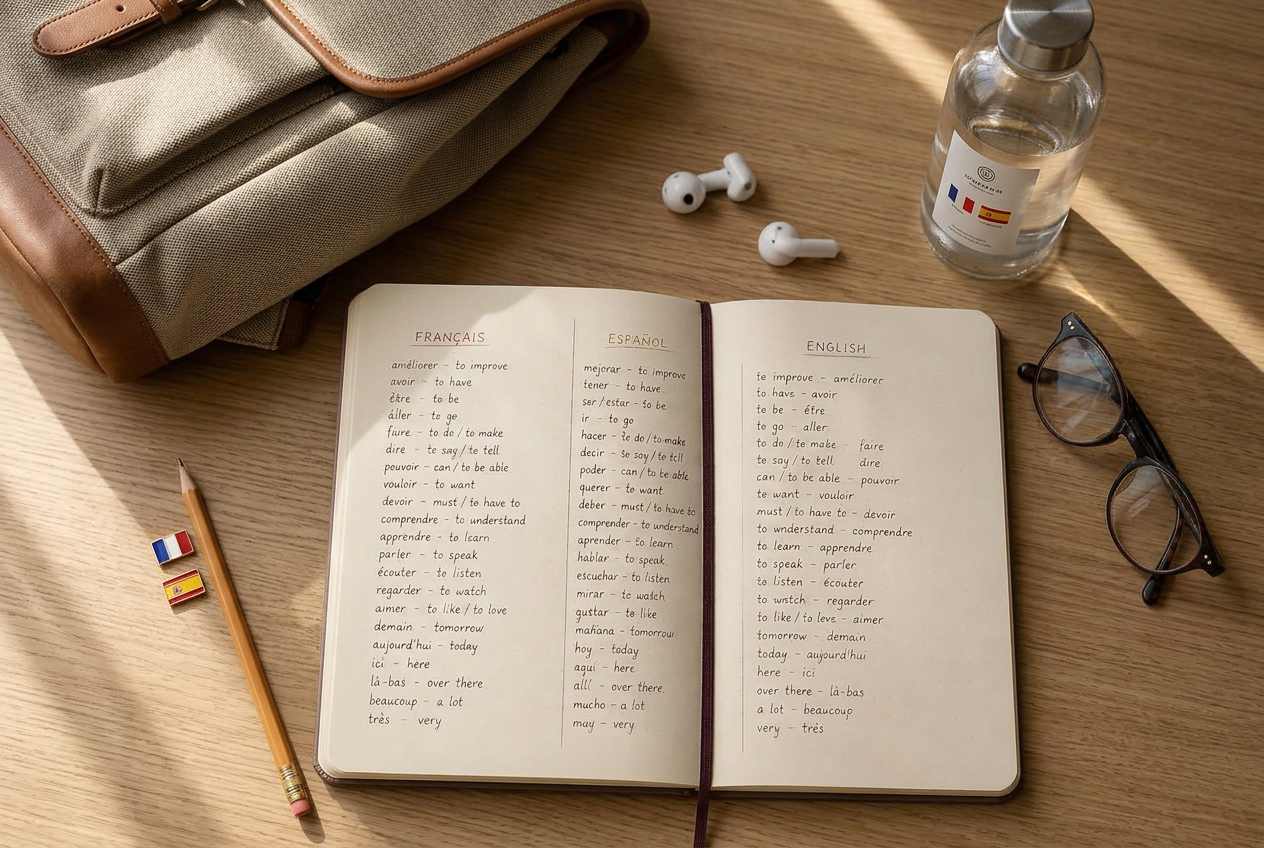 FRANÇAIS
améliorer – to improve
avoir – to have
être – to be
áller – to ge
fuire – to do / to make
dire – te say / te tell
pouvoir – can / to be able
vouloir – to want
devoir – must / te have to
comprendre – to understand
apprendre – to lsarn
parler – to speak
écouter – te listen
regarder – to watch
aimer – to like / to love
demain – tomorrow
aujourd'hui – today
ici – here
là-bas – over there
beaucoup – a lot
très – very
ESPAÑOL
mejorar – tc improve
tener – to have
ser / estar – to be
ir – to go
hacer – te do / to make
decir – se soy / te tell
poder – can / to be able
querer – te want
deber – must / to have to
comprender – to understand
aprender – to learn
hablar – to speak
escuchar – to listen
mirar – to watch
gustar – te like
mañana – tomorrow
hoy – today
aquí – here
allí – over there
mucho – a lot
may – very
ENGLISH
te improve – améliorer
to have – avoir
te be – être
to go – aller
to do / te make – faire
te say / to tell dire
can / to be able – pouvoir
te want – vouloir
must / to have to – devoir
to wnderstand – comprendre
to learn – apprendre
to speak – parler
to listen – écouter
to wstch – regarder
to like / to leve – aimer
tomorrow – demain
today – aujourd'hui
here – ici
over there – là-bas
a lot – beaucoup
very – très